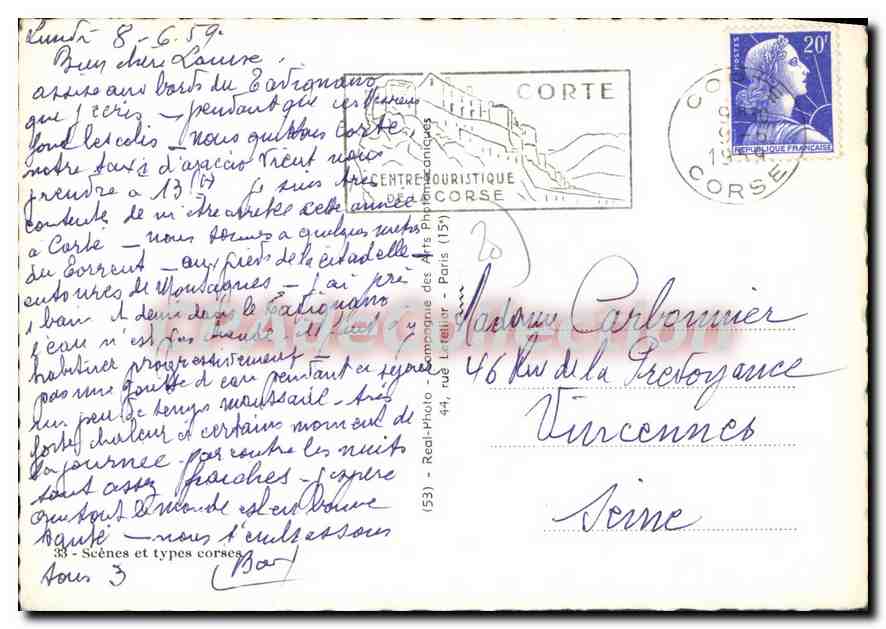 Lundi 8-6.59.
Bien chère Louise,
assise aux bords du Tavignano
que j'écris – pendant que ces Messieurs
font les colis – nous quittons Corté,
notre taxi d'ajaccio vient nous
prendre à 13 H je suis très
contente de m'être arrêtée cette année
à Corté – nous sommes à quelques mètres
du torrent – aux pieds de la citadelle –
entourés de Montagnes – j'ai pris
1 bain et demi dans le Tavignano
l'eau n'est pas chaude – il faut s'y
habituer progressivement –
pas une goutte d'eau pendant ce séjour
un peu de temps moussade – très
forte chaleur à certains moment de
la journée – par contre les nuits
sont assez fraiches – j'espère
que tout le monde est en bonne
santé – nous t'embrassons
tous 3
33 - Scènes et types corses
CORTE
CENTRE TOURISTIQUE
DE LA CORSE
CORSE
POSTES
20F
REPUBLIQUE FRANCAISE
20
(53) - Real-Photo - Compagnie des Arts Photomécaniques
44, rue Letellier - Paris (15e)
Madame Carbonnier
46 Rue de la Prévoyance
Vincennes
Seine